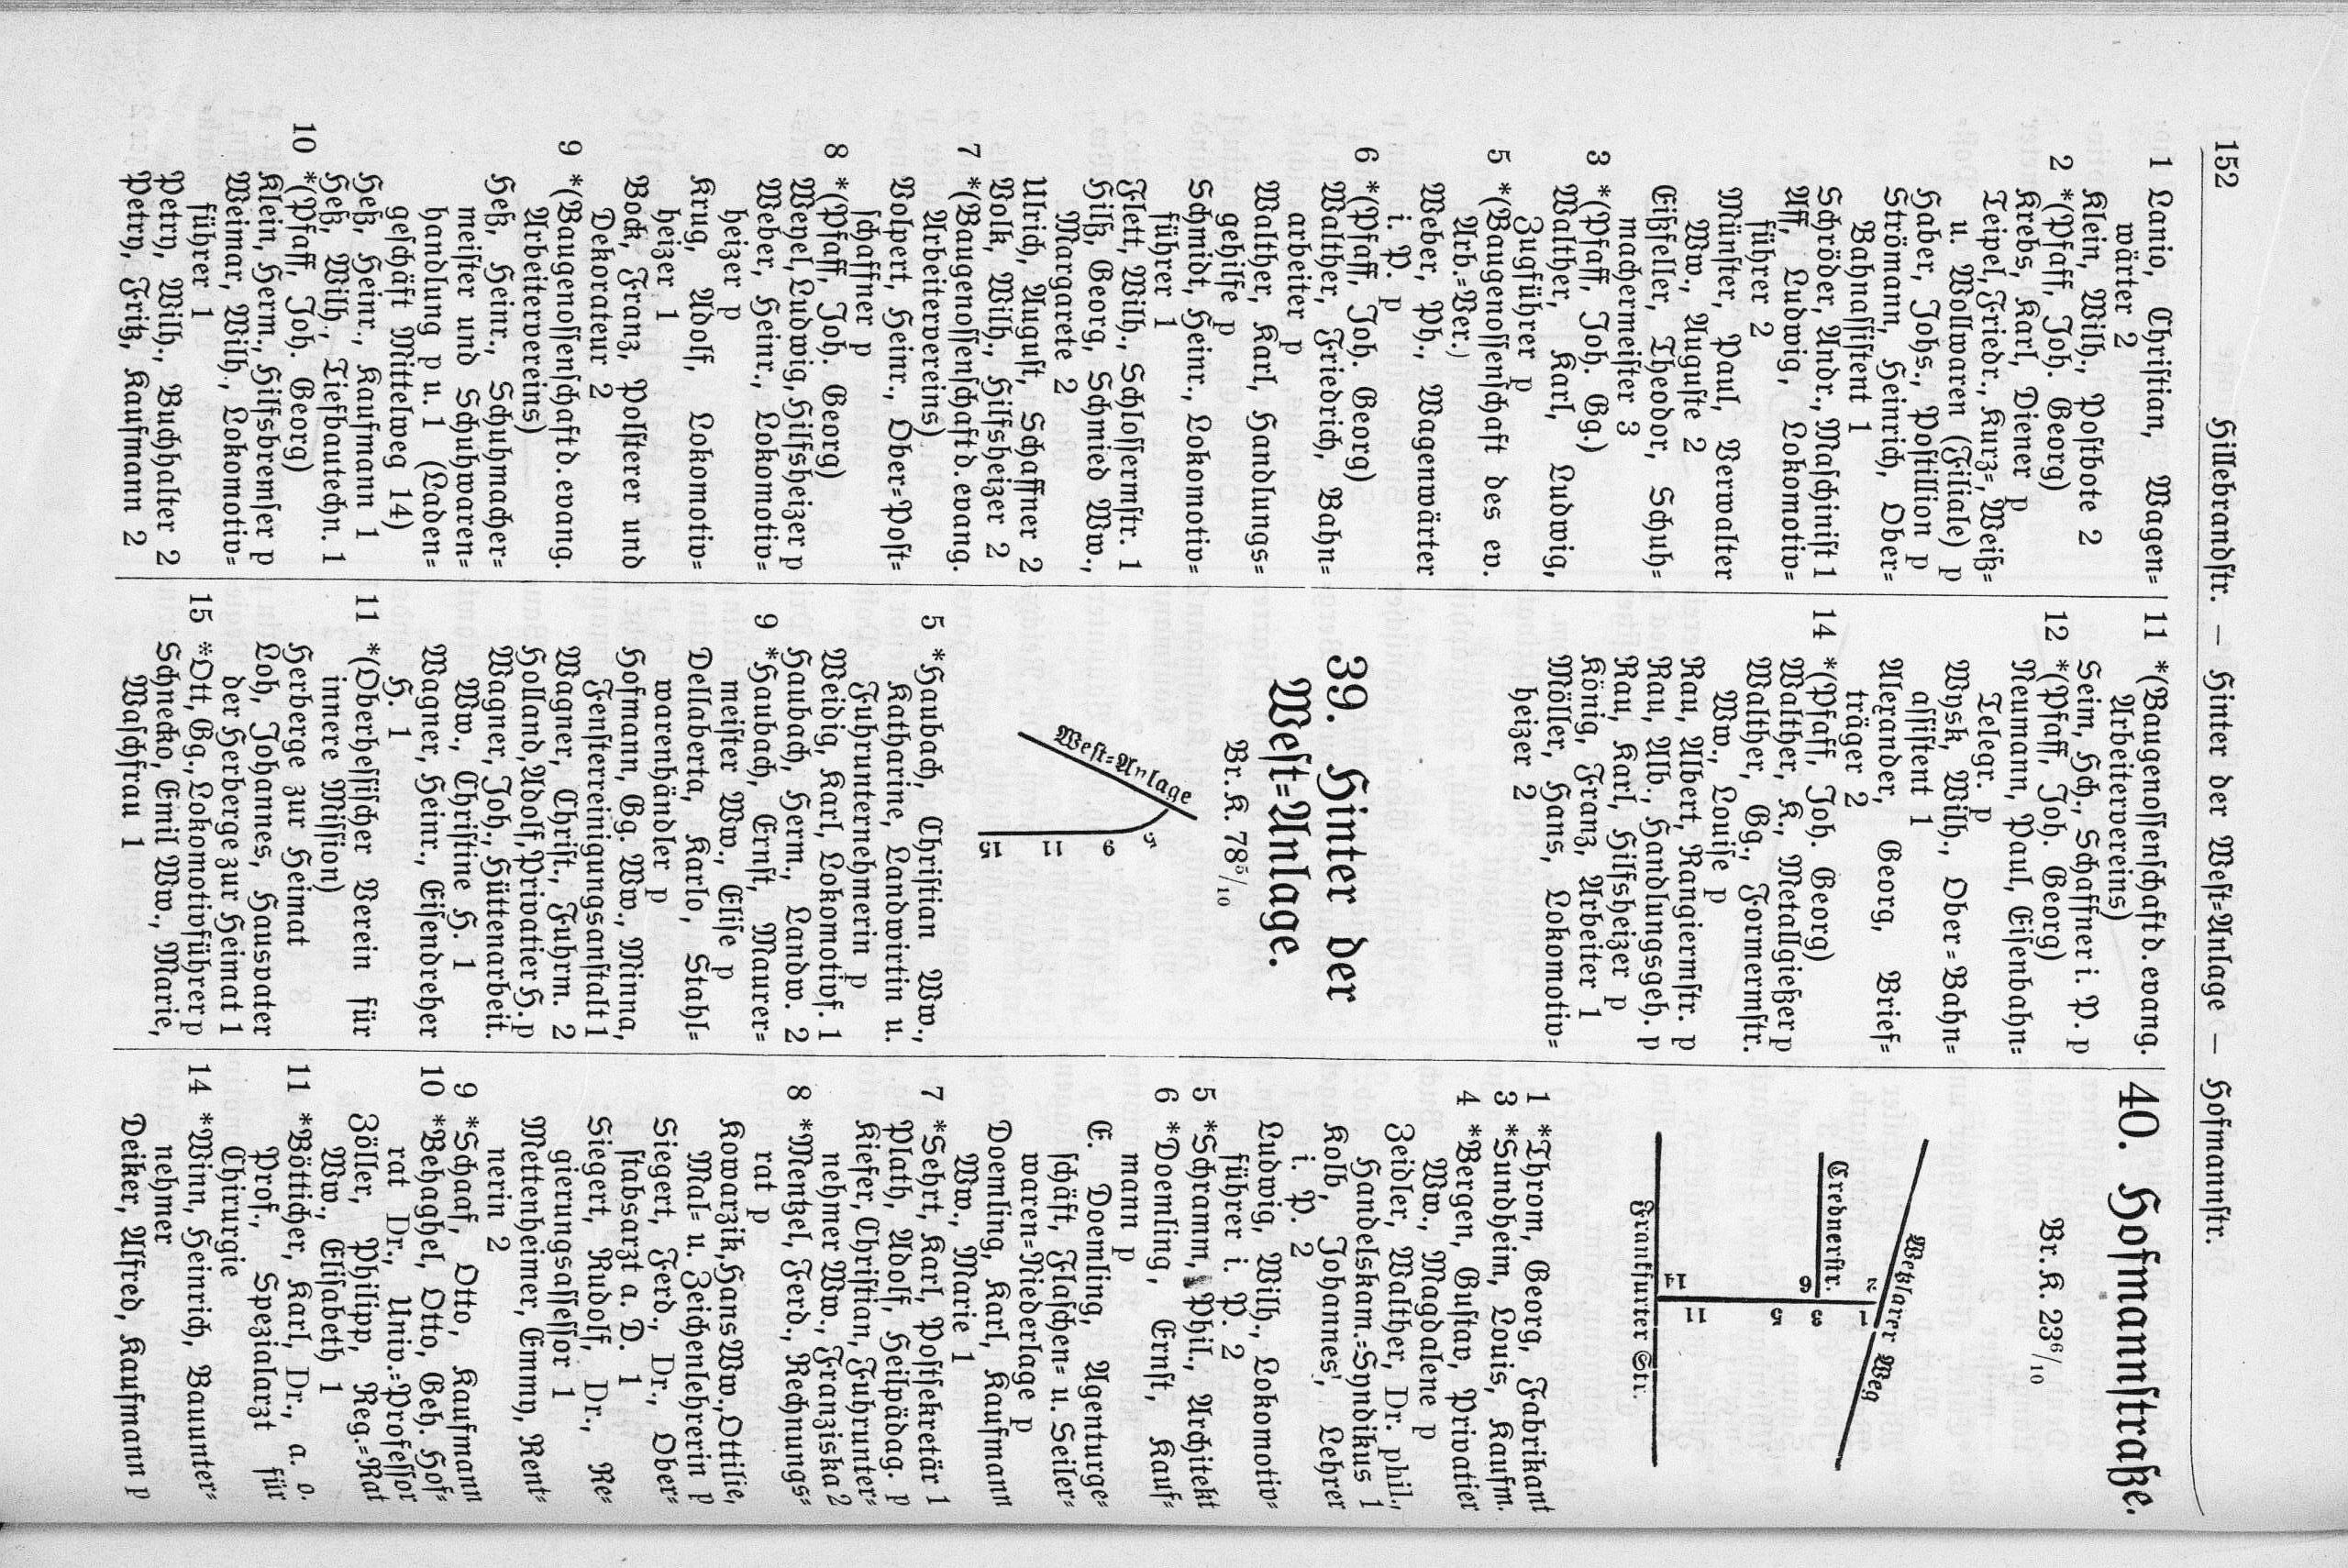 152 Hillebrandſtr. — Hinter der Weſt=Anlage — Hofmannſtr.
1 Lanio, Chriſtian, Wagen=
wärter 2
Klein, Wilh., Poſtbote 2
2 *(Pfaff, Joh. Georg)
Krebs, Karl, Diener p
Teipel, Friedr., Kurz=, Weiß=
u. Wollwaren (Filiale) p
Haber, Johs., Poſtillion p
Strömann, Heinrich, Ober=
Bahnaſſiſtent 1
Schröder, Andr., Maſchiniſt 1
Uff, Ludwig, Lokomotiv=
führer 2
Münſter, Paul, Verwalter
Ww., Auguſte 2
Eißfeller, Theodor, Schuh=
machermeiſter 3
3 *(Pfaff, Joh. Gg.)
Walther, Karl, Ludwig,
Zugführer p
5 *(Baugenoſſenſchaft des ev.
Arb.=Ver.)
Weber, Ph., Wagenwärter
i. P. p
6 *(Pfaff, Joh. Georg)
Walther, Friedrich, Bahn=
arbeiter p
Walther, Karl, Handlungs=
gehilfe p
Schmidt, Heinr., Lokomotiv=
führer 1
Flett, Wilh., Schloſſermſtr. 1
Hilß, Georg, Schmied Ww.,
Margarete 2
Ulrich, Auguſt, Schaffner 2
Volk, Wilh., Hilfsheizer 2
7 *(Baugenoſſenſchaft d. evang.
Arbeitervereins)
Volpert, Heinr., Ober=Poſt=
ſchaffner p
8 *(Pfaff, Joh. Georg)
Weyel, Ludwig, Hilfsheizer p
Weber, Heinr., Lokomotiv=
heizer p
Krug, Adolf, Lokomotiv=
heizer 1
Bock, Franz, Polſterer und
Dekorateur 2
9 *(Baugenoſſenſchaft d. evang.
Arbeitervereins)
Heß, Heinr., Schuhmacher=
meiſter und Schuhwaren=
handlung p u. 1 (Laden=
geſchäft Mittelweg 14)
Heß, Heinr., Kaufmann 1
Heß, Wilh., Tiefbautechn. 1
10 *(Pfaff, Joh. Georg)
Klein, Herm., Hilfsbremſer p
Weimar, Wilh., Lokomotiv=
führer 1
Petry, Wilh., Buchhalter 2
Petry, Fritz, Kaufmann 2
11 *(Baugenoſſenſchaft d. evang.
Arbeitervereins)
Seim, Hch., Schaffner i. P. p
12 *(Pfaff, Joh. Georg)
Neumann, Paul, Eiſenbahn=
Telegr. p
Wyſk, Wilh., Ober=Bahn=
aſſiſtent 1
Alexander, Georg, Brief=
träger 2
14 *(Pfaff, Joh. Georg)
Walther, K., Metallgießer p
Walther, Gg., Formermſtr.
Ww., Louiſe p
Rau, Albert, Rangiermſtr. p
Rau, Alb., Handlungsgeh. p
Rau, Karl, Hilfsheizer p
König, Franz, Arbeiter 1
Möller, Hans, Lokomotiv=
heizer 2
39. Hinter der
Weſt=Anlage.
Br.K. 78⁵/₁₀
Weſt=Anlage
5
9
11
15
5 *Haubach, Chriſtian Ww.,
Katharine, Landwirtin u.
Fuhrunternehmerin p
Weidig, Karl, Lokomotivf. 1
Haubach, Herm., Landw. 2
9 *Haubach, Ernſt, Maurer=
meiſter Ww., Eliſe p
Dellaberta, Karlo, Stahl=
warenhändler p
Hofmann, Gg. Ww., Minna,
Fenſterreinigungsanſtalt 1
Wagner, Chriſt., Fuhrm. 2
Holland, Adolf, Privatier H. p
Wagner, Joh., Hüttenarbeit.
Ww., Chriſtine H. 1
Wagner, Heinr., Eiſendreher
H. 1
11 *(Oberheſſiſcher Verein für
innere Miſſion)
Herberge zur Heimat
Loh, Johannes, Hausvater
der Herberge zur Heimat 1
15 *Ott, Gg., Lokomotivführer p
Schnecko, Emil Ww., Marie,
Waſchfrau 1
40. Hofmannſtraße.
Br.K. 23⁶/₁₀
Wetzlarer Weg
Crednerſtr.
Frankfurter Str.
2
6
14
1
3
5
11
1 *Throm, Georg, Fabrikant
3 *Sundheim, Louis, Kaufm.
4 *Bergen, Guſtav, Privatier
Ww., Magdalene p
Zeidler, Walther, Dr. phil.,
Handelskam.=Syndikus 1
Kolb, Johannes, Lehrer
i. P. 2
Ludwig, Wilh., Lokomotiv=
führer i. P. 2
5 *Schramm, Phil., Architekt
6 *Doemling, Ernſt, Kauf=
mann p
E. Doemling, Agenturge=
ſchäft, Flaſchen= u. Seiler=
waren=Niederlage p
Doemling, Karl, Kaufmann
Ww., Marie 1
7 *Sehrt, Karl, Poſtſekretär 1
Plath, Adolf, Heilpädag. p
Kiefer, Chriſtian, Fuhrunter=
nehmer Ww., Franziska 2
8 *Mentzel, Ferd., Rechnungs=
rat p
Kowarzik, Hans Ww., Ottilie,
Mal= u. Zeichenlehrerin p
Siegert, Ferd., Dr., Ober=
ſtabsarzt a. D. 1
Siegert, Rudolf, Dr., Re=
gierungsaſſeſſor 1
Mettenheimer, Emmy, Rent=
nerin 2
9 *Schaaf, Otto, Kaufmann
10 *Behaghel, Otto, Geh. Hof=
rat Dr., Univ.=Profeſſor
Zöller, Philipp, Reg.=Rat
Ww., Eliſabeth 1
11 *Bötticher, Karl, Dr., a. o.
Prof., Spezialarzt für
Chirurgie
14 *Winn, Heinrich, Baunter=
nehmer
Deiker, Alfred, Kaufmann p